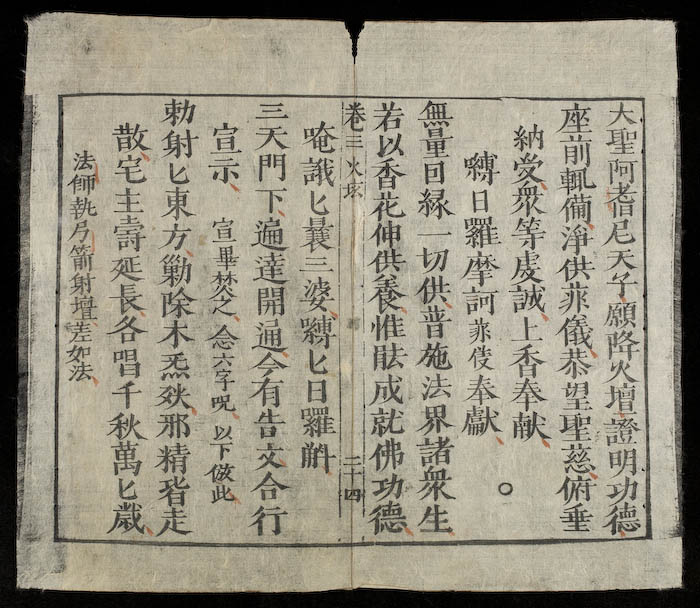 大聖阿耆尼天子願降火壇證明功德
座前輒備淨供菲儀恭望聖慈俯垂
納受眾等虔誠上香奉献
嚩日羅摩訶菲伎奉獻 ○
無量回緣一切供普施法界諸眾生
若以香花伸供養惟䏻成就佛功德
卷三火垓 二十四
唵誐匕曩三婆嚩匕日羅斛
三天門下遍達開通今有告文合行
宣示 宣畢焚之 念六字呪 以下倣此
勅射匕東方勦除木炁殃邪精砦走
散宅主壽延長各唱千秋萬匕歲
法師執弓箭射壇差如法